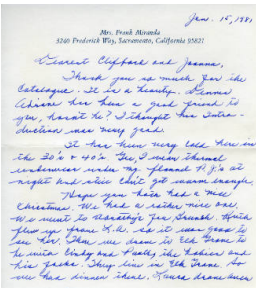 Jan. 15, 1981
Mrs. Frank Miranda
3240 Frederick Way, Sacramento, California 95821
Dearest Clifford and Joanna,
Thank you so much for the
Catalogue. It is a beauty.
has been a good friend to
you, hasn't he? I thought his Intro-
duction was very good.
It has been very cold here in
the 30's & 40's. I wear thermal
underwear under my flannel P.J.'s at
night and still can't get warm enough.
Hope you both had a nice
Christmas. We had a rather nice one.
We went to for Brunch.
flew up from L.A. so it was good to
see her. Then we drove to Elk Grove to
be with and the babies and
his folks. They live in Elk Grove. So
we had dinner there. drove